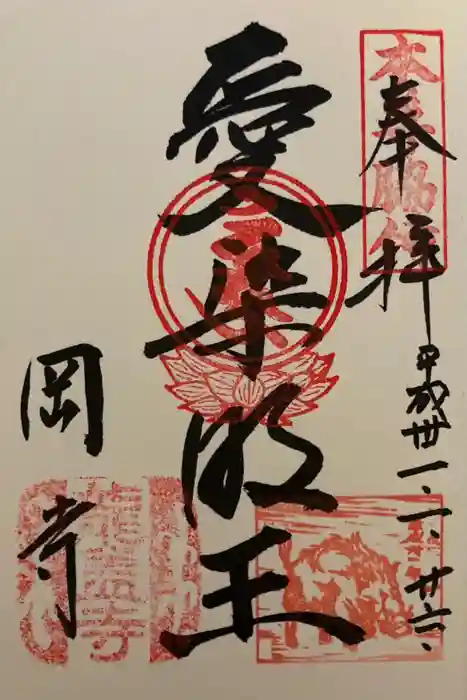 奉拝
平成卅一、一、廿六、
愛染明王
岡寺